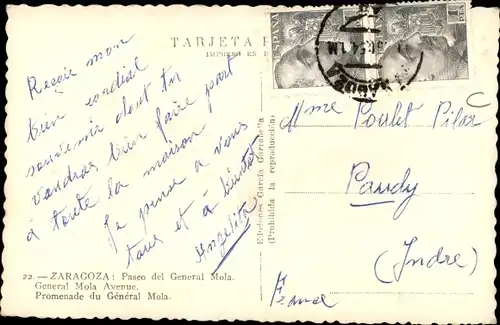 TARJETA P
IMPRESO EN E
ESPAÑA
1 PTS
Reçoir mon
bien cordial
souvenir dont tu
vaudras bien faire part
à toute la maison
Je pense a vous
tous et à bientôt
Angelita
Mme Poulet Pilar
Paudy
(Indre)
France
Ediciones García Garrabella
(Prohibida la reproducción)
22.—ZARAGOZA: Paseo del General Mola.
General Mola Avenue.
Promenade du Général Mola.